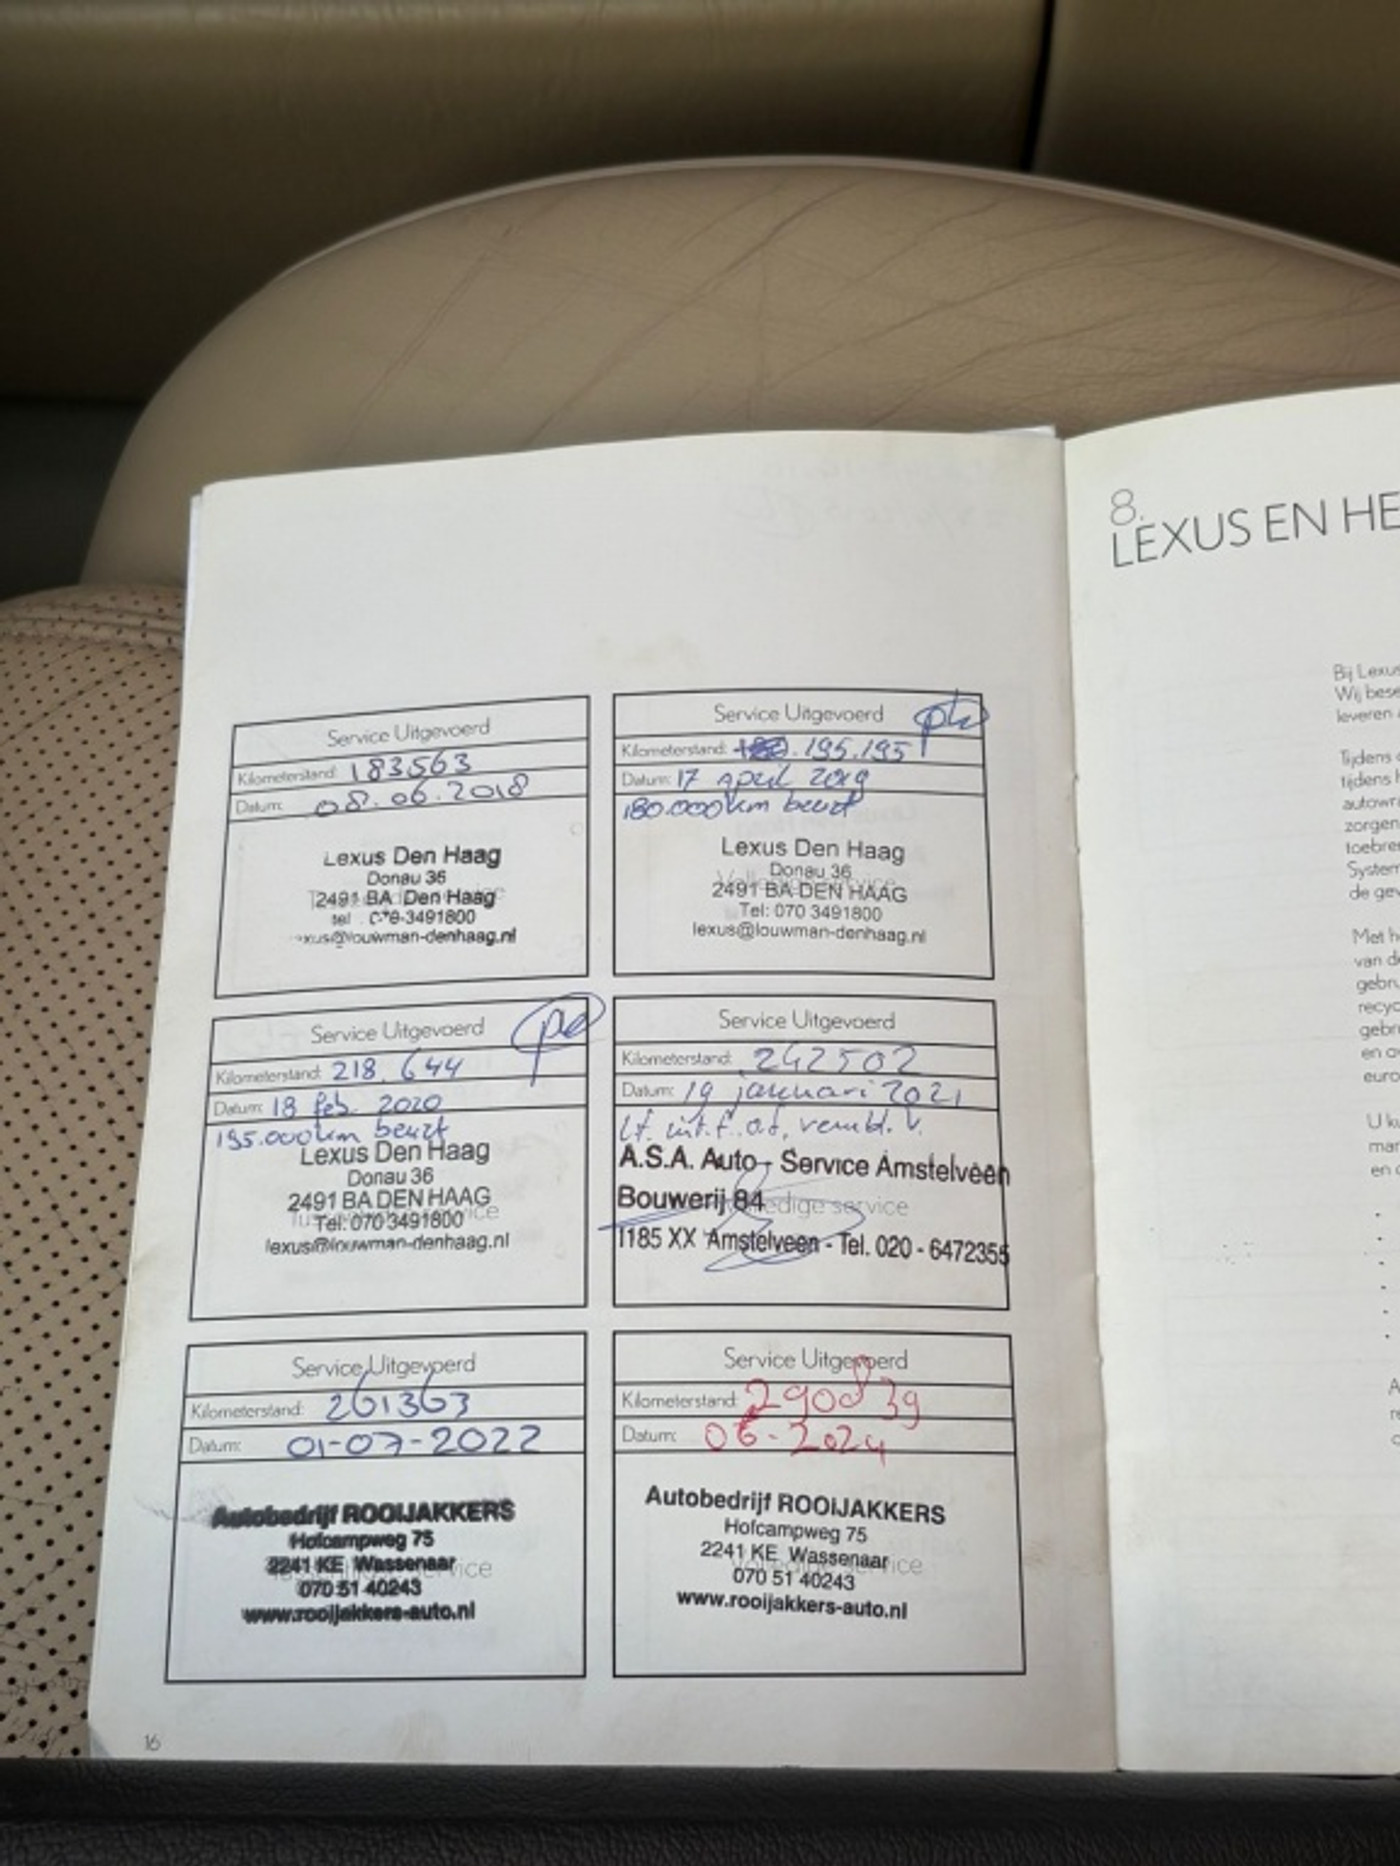 Service Uitgevoerd
Kilometerstand: 183563
Datum: 08.06.2018
Lexus Den Haag
Donau 36
2491 BA Den Haag
tel 070-3491800
lexus@louwman-denhaag.nl
Service Uitgevoerd
Kilometerstand: 195.195
Datum: 17 april 2019
180.000km beurt
Lexus Den Haag
Donau 36
2491 BA DEN HAAG
Tel: 070 3491800
lexus@louwman-denhaag.nl
Service Uitgevoerd
Kilometerstand: 218.644
Datum: 18 feb. 2020
195.000km beurt
Lexus Den Haag
Donau 36
2491 BA DEN HAAG
Tel: 070 3491800
lexus@louwman-denhaag.nl
Service Uitgevoerd
Kilometerstand: 242502
Datum: 19 januari 2021
A.S.A. Auto - Service Amstelveen
Bouwerij 84
Volledige service
1185 XX Amstelveen - Tel. 020 - 6472355
Service Uitgevoerd
Kilometerstand: 261363
Datum: 01-07-2022
Autobedrijf ROOIJAKKERS
Hofcampweg 75
2241 KE Wassenaar
070 51 40243
www.rooijakkers-auto.nl
Service Uitgevoerd
Kilometerstand: 290839
Datum: 06-2024
Autobedrijf ROOIJAKKERS
Hofcampweg 75
2241 KE Wassenaar
Volledige service
070 51 40243
www.rooijakkers-auto.nl
16
8.
LEXUS EN HE
Bij Lexus
Wij bese
leveren
Tijdens
tijdens h
autowr
zorgen
toebre
System
de gev
Met h
van de
gebru
recyc
gebr
en o
euro
U k
mar
en